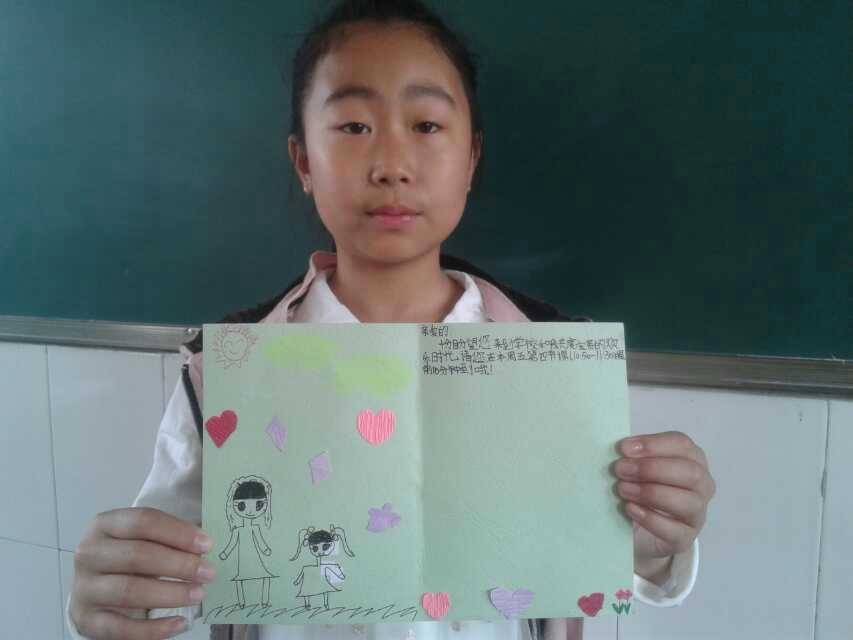 亲爱的:
盼盼望您来到学校和我共度宝贵的欢
乐时代,请您在本周五第四节课(10:50-11:30)
前10分钟到哦!